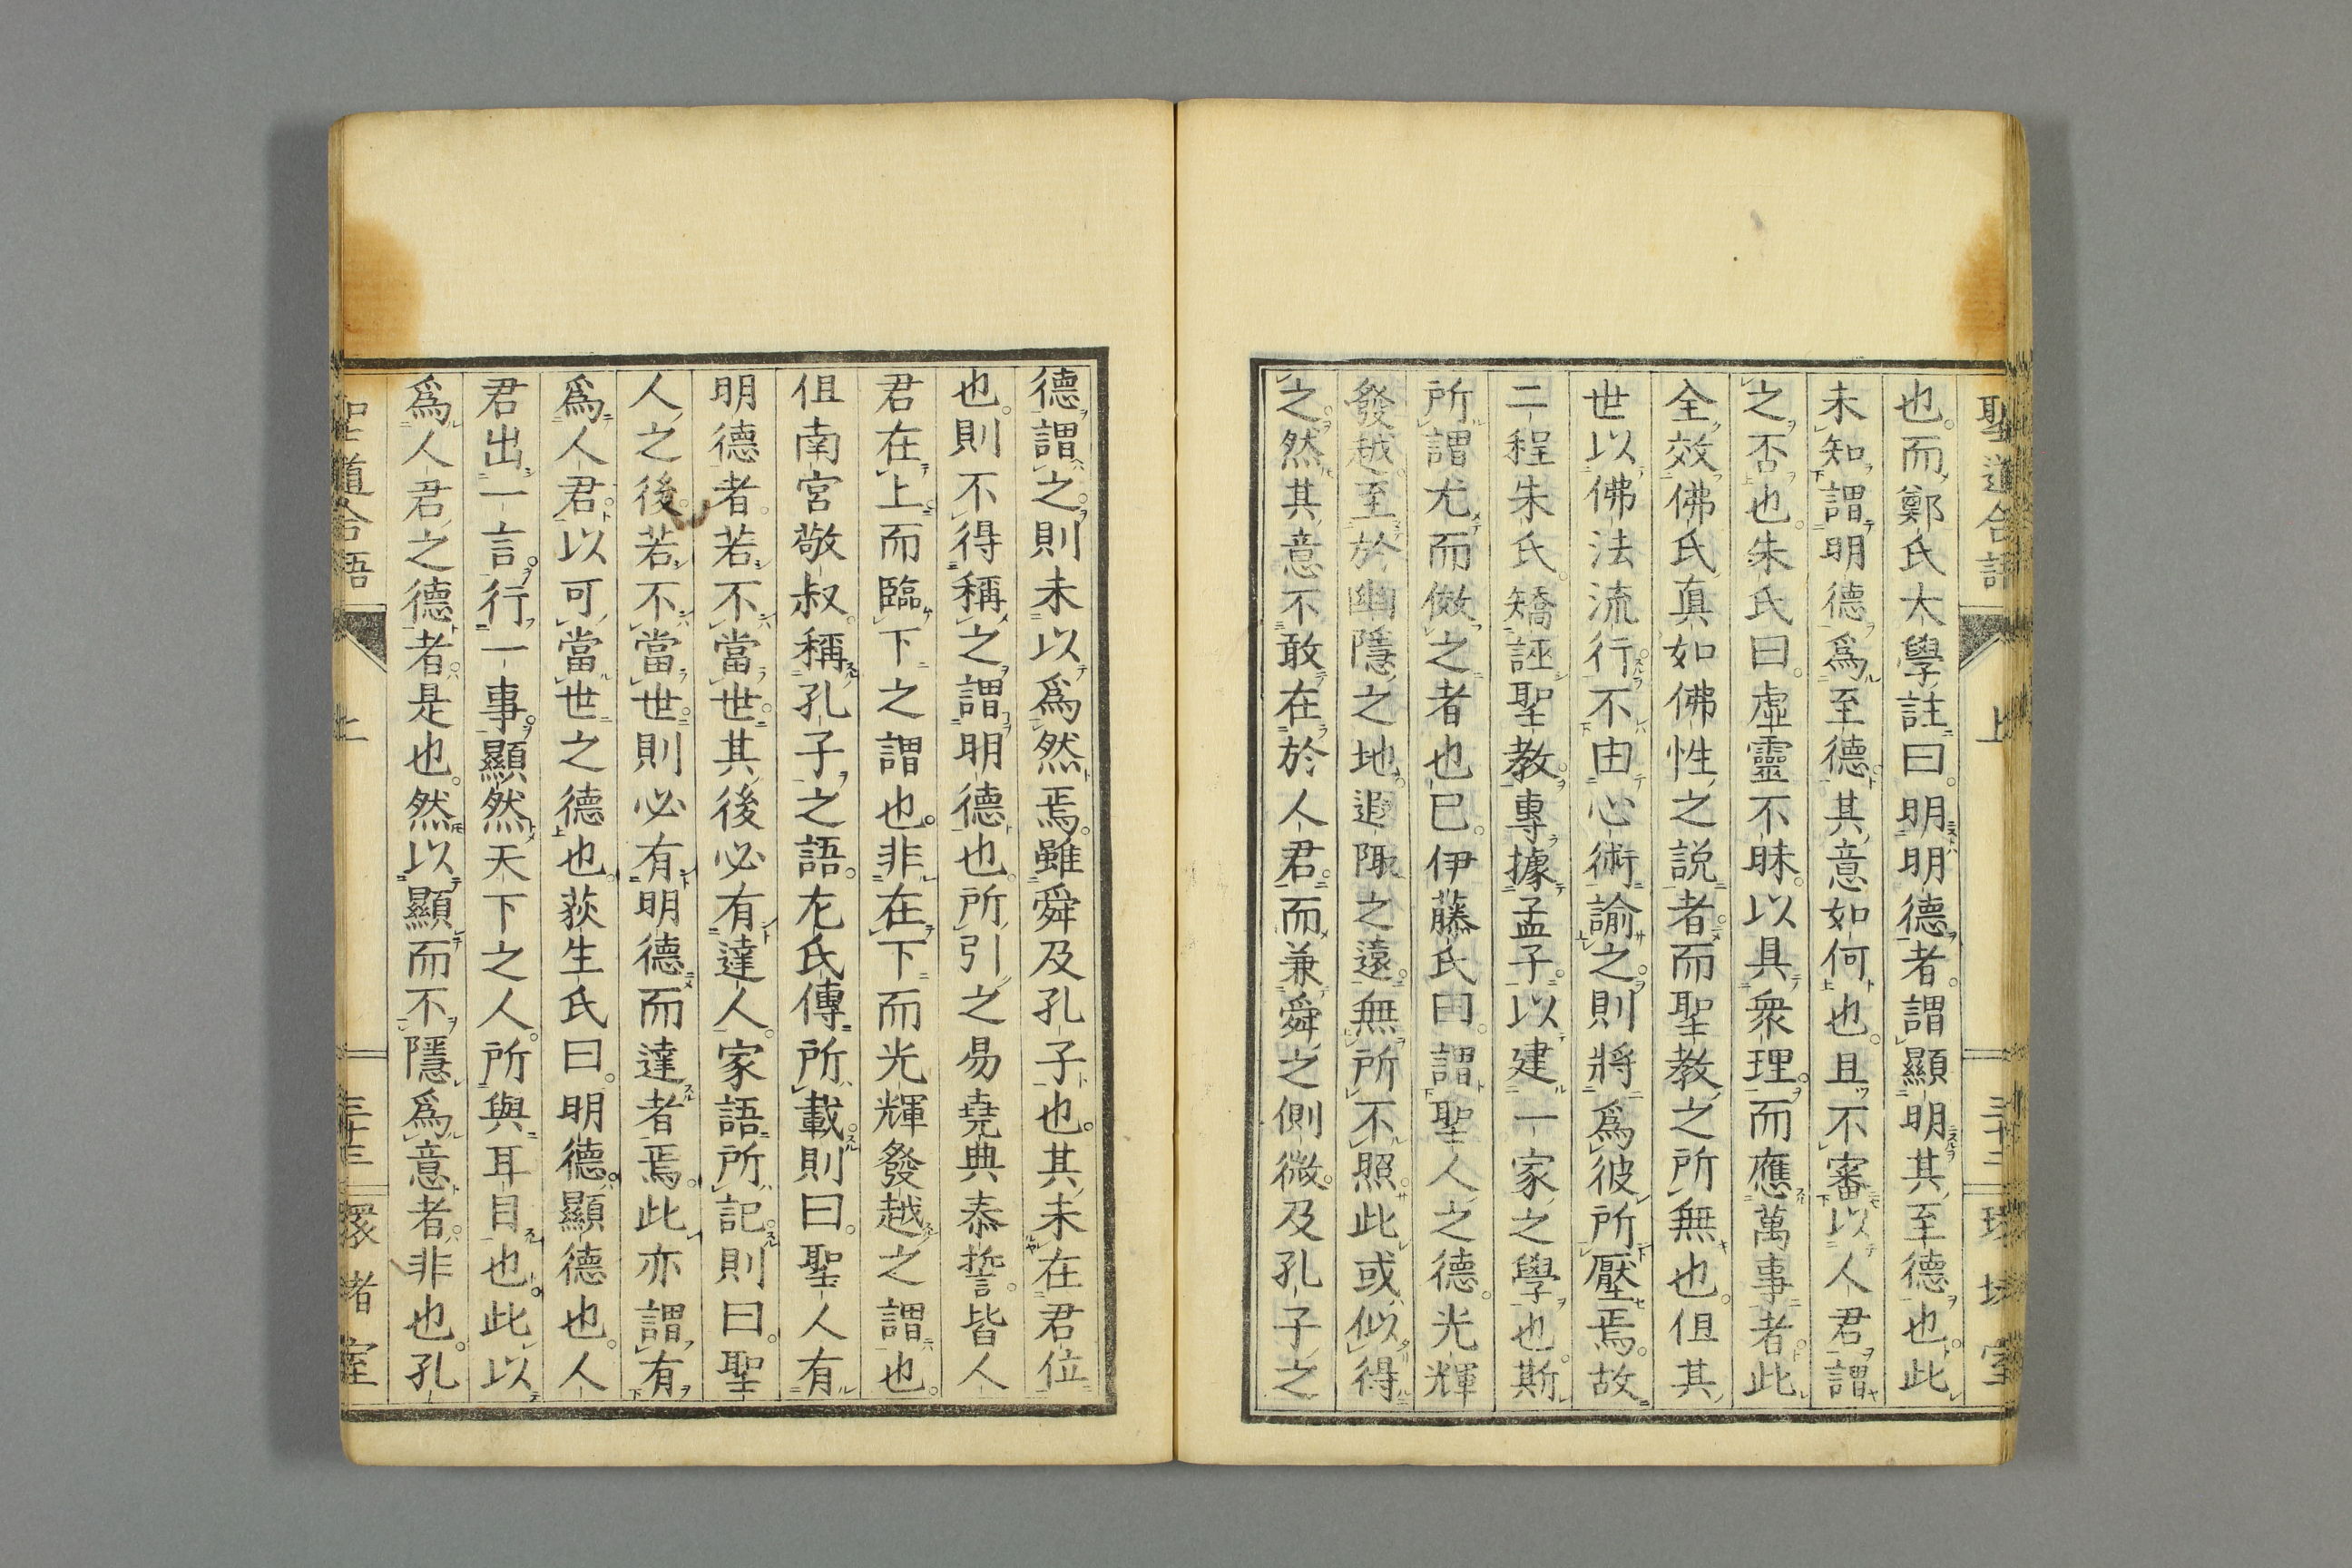 也。而鄭氏大學註曰。明明德者。謂顯明其至德也。此
未知謂明德爲至德。其意如何也。且不審以人君謂
之否也。朱氏曰。虛靈不昧。以具衆理。而應萬事者。此
全效佛氏眞如佛性之説者。而聖教之所無也。但其
世以佛法流行。不由心術諭之。則將爲彼所壓焉。故
二程朱氏。矯誣聖教。專據孟子。以建一家之學也。斯
所謂尤而傚之者也已。伊藤氏曰。謂聖人之德。光輝
發越。至於幽隱之地。遐陬之遠。無所不照。此或似得
之。然其意不敢在於人君。而兼舜之側微。及孔子之
德謂之。則未以爲然焉。雖舜及孔子也。其未在君位
也。則不得稱之謂明德也。所引之易堯典泰誓。皆人
君在上。而臨下之謂也。非在下而光輝發越之謂也。
但南宮敬叔。稱孔子之語。左氏傳所載。則曰。聖人有
明德者。若不當世。其後必有達人。家語所記。則曰。聖
人之後。若不當世。則必有明德而達者焉。此亦謂有
爲人君。以可當世之德也。荻生氏曰。明德。顯德也。人
君出一言。行一事。顯然天下之人。所與耳目也。此以
爲人君之德者。是也。然以顯而不隱爲意者。非也。孔
聖道合語
上
三十三
環堵室